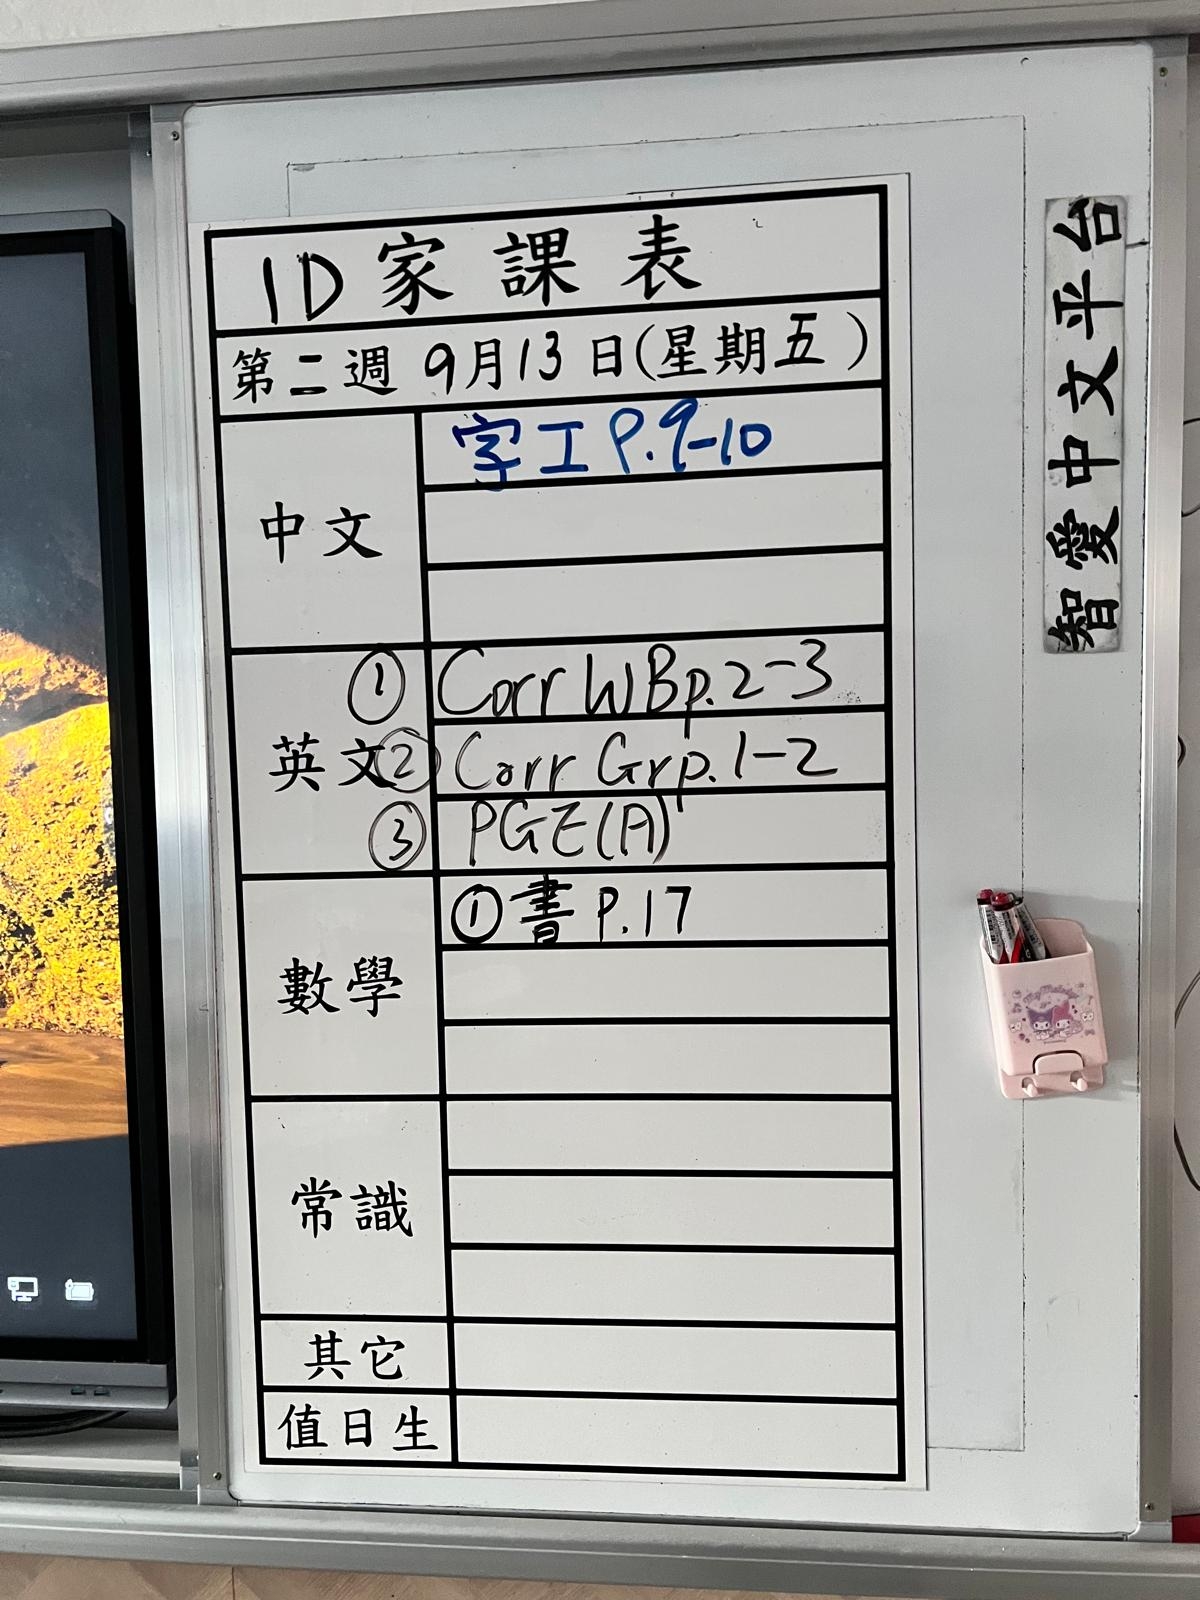 1D 家課表
第二週 9月13日(星期五)
中文
字工 P.9-10
英文
① Corr WB p.2-3
② Corr Gr p.1-2
③ PGE(A)
數學
① 書 P.17
常識
其它
值日生
智愛中文平台